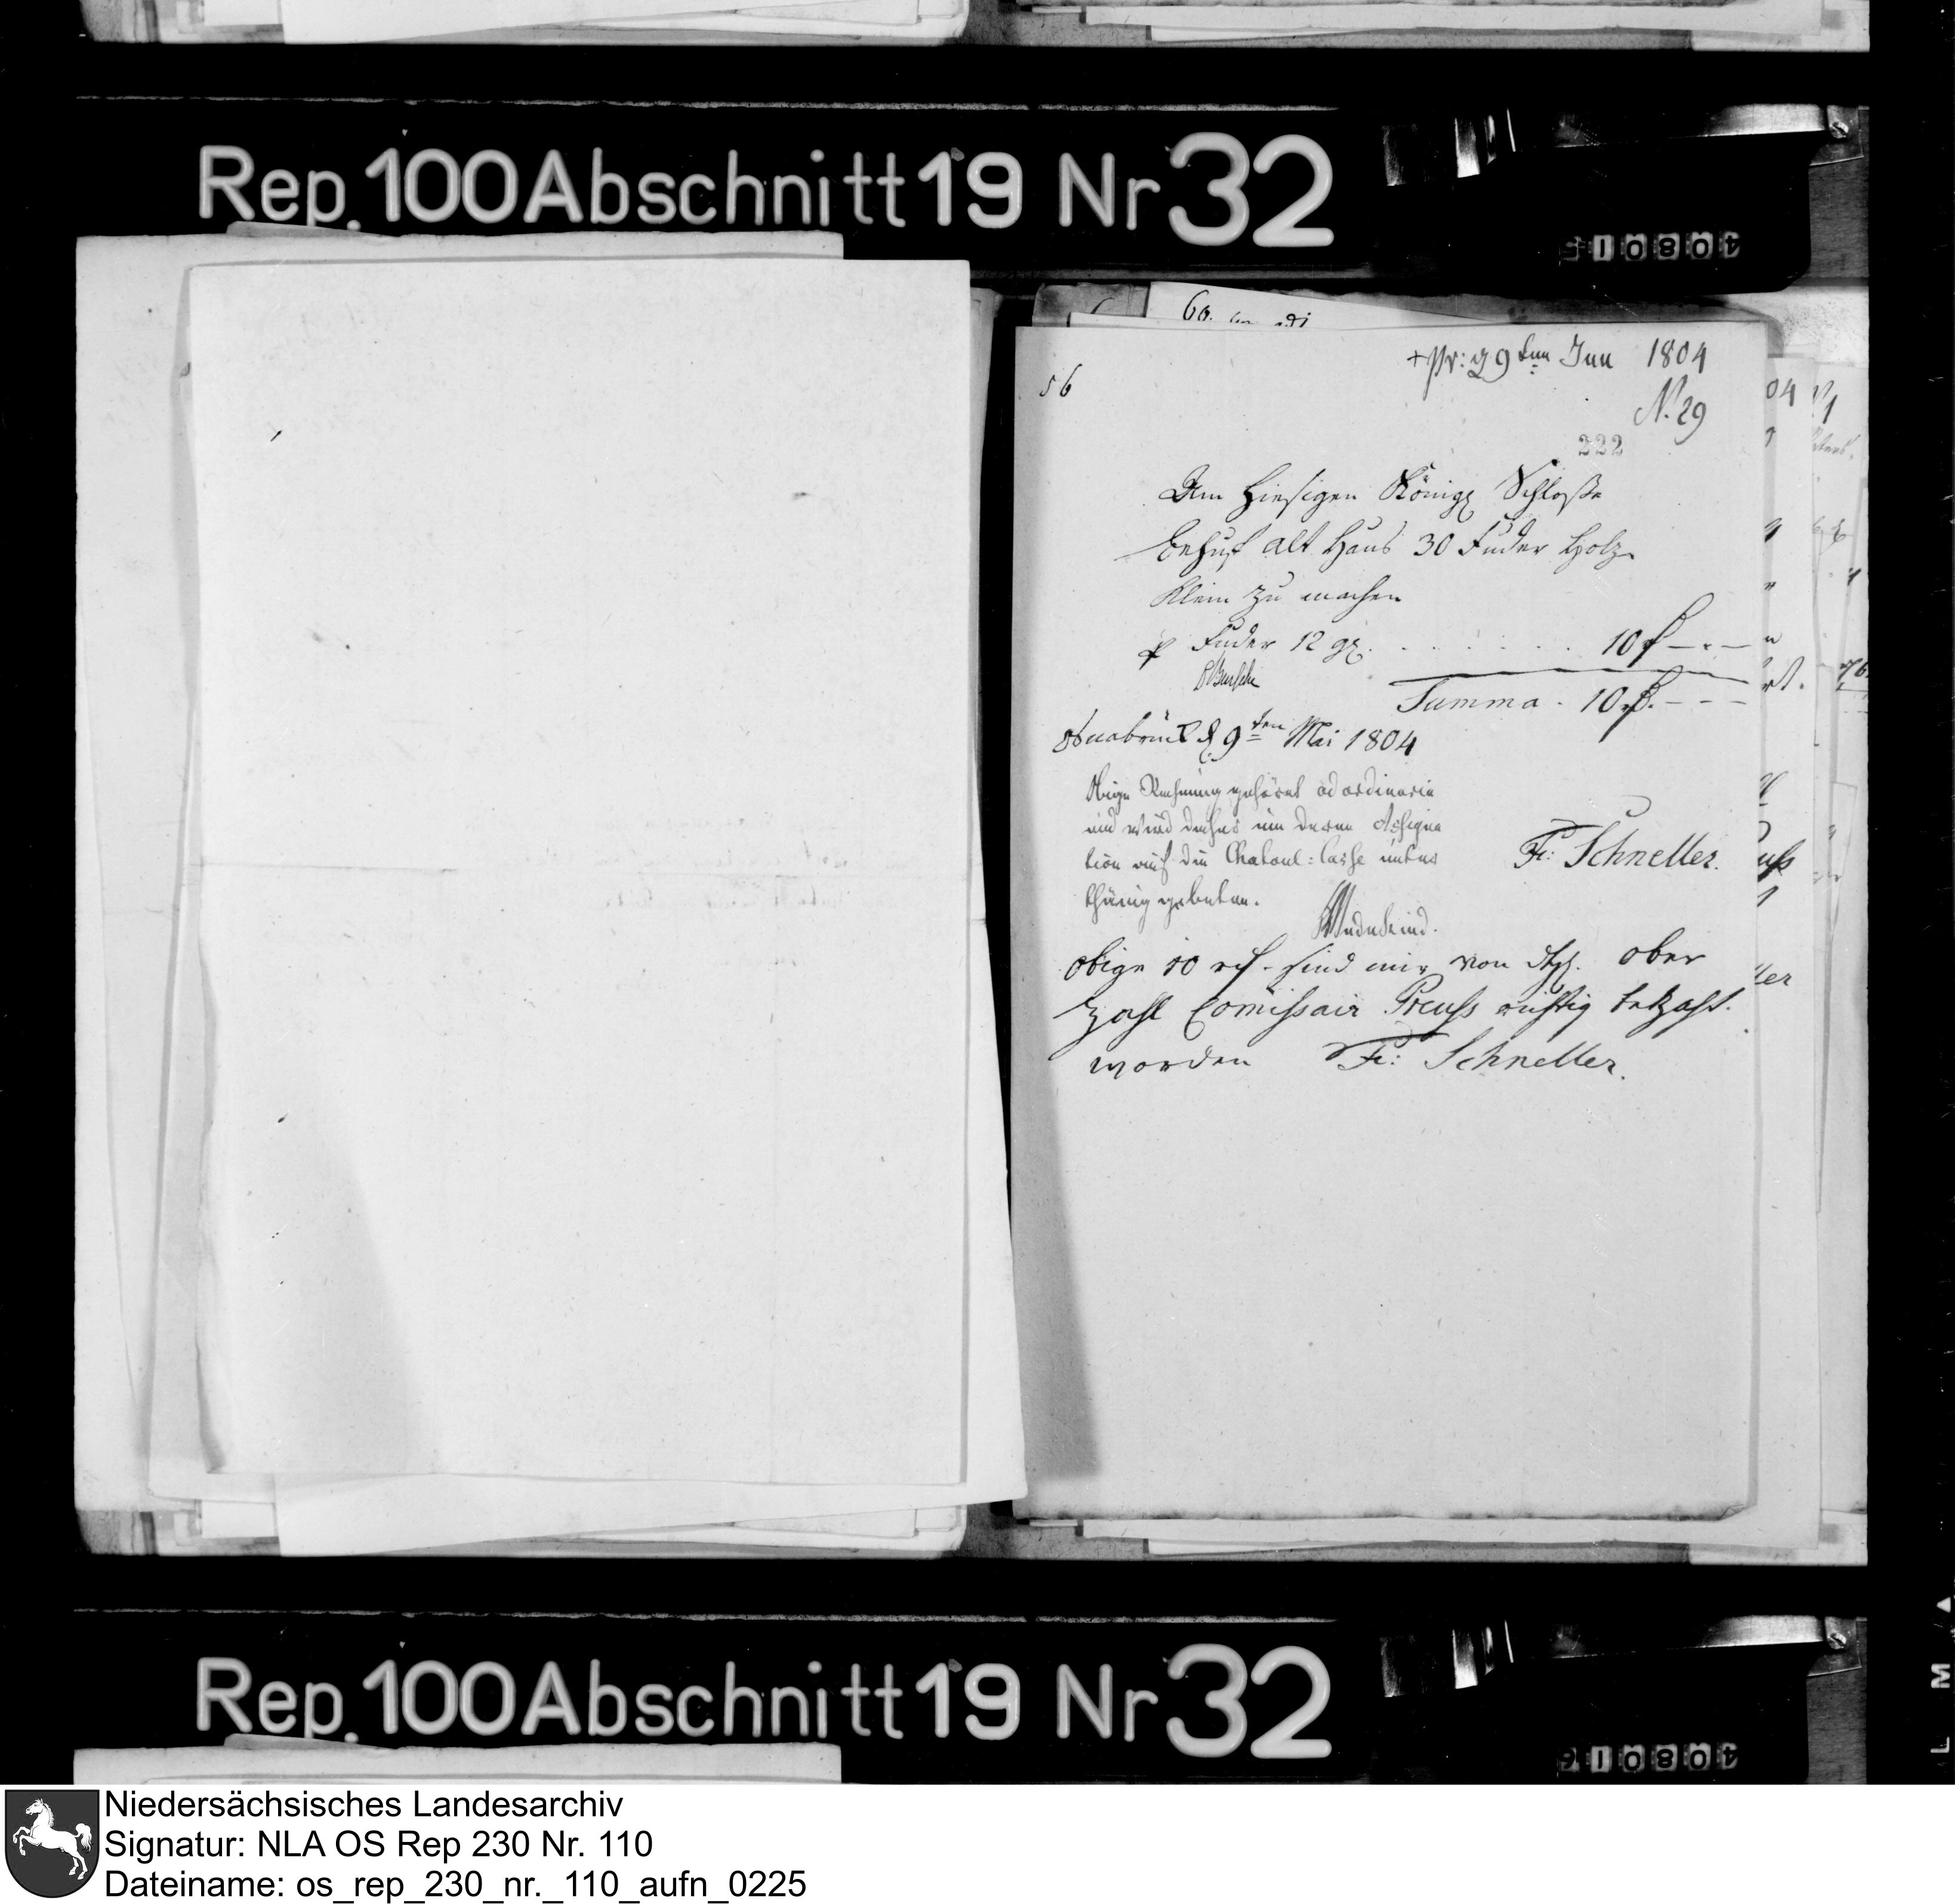 Rep. 100 Abschnitt 19 Nr 32
56
+ pr: 29ten Jun 1804
N. 29
222
Am hiesigen Königl Schloße
behuf alt Haus 30 Fuder Holz
klein zu machen
p Fuder 12 gl. . . . . . . 10 rt — . —
Summa . 10 rt. — — —
Osnabrück d 9ten Mai 1804
Obige Rechnung gehöret ad ordinaria
und wird daher um deren Assigna
tion auf die Chatoul=Casse unter
thänig gebeten.
Wedekind.
Fr: Schneller.
Obige 10 rt. sind mir von ober
Zahl Comissair Preuss richtig bezahlt.
worden Fr: Schneller.
Rep. 100 Abschnitt 19 Nr 32
Niedersächsisches Landesarchiv
Signatur: NLA OS Rep 230 Nr. 110
Dateiname: os_rep_230_nr._110_aufn_0225